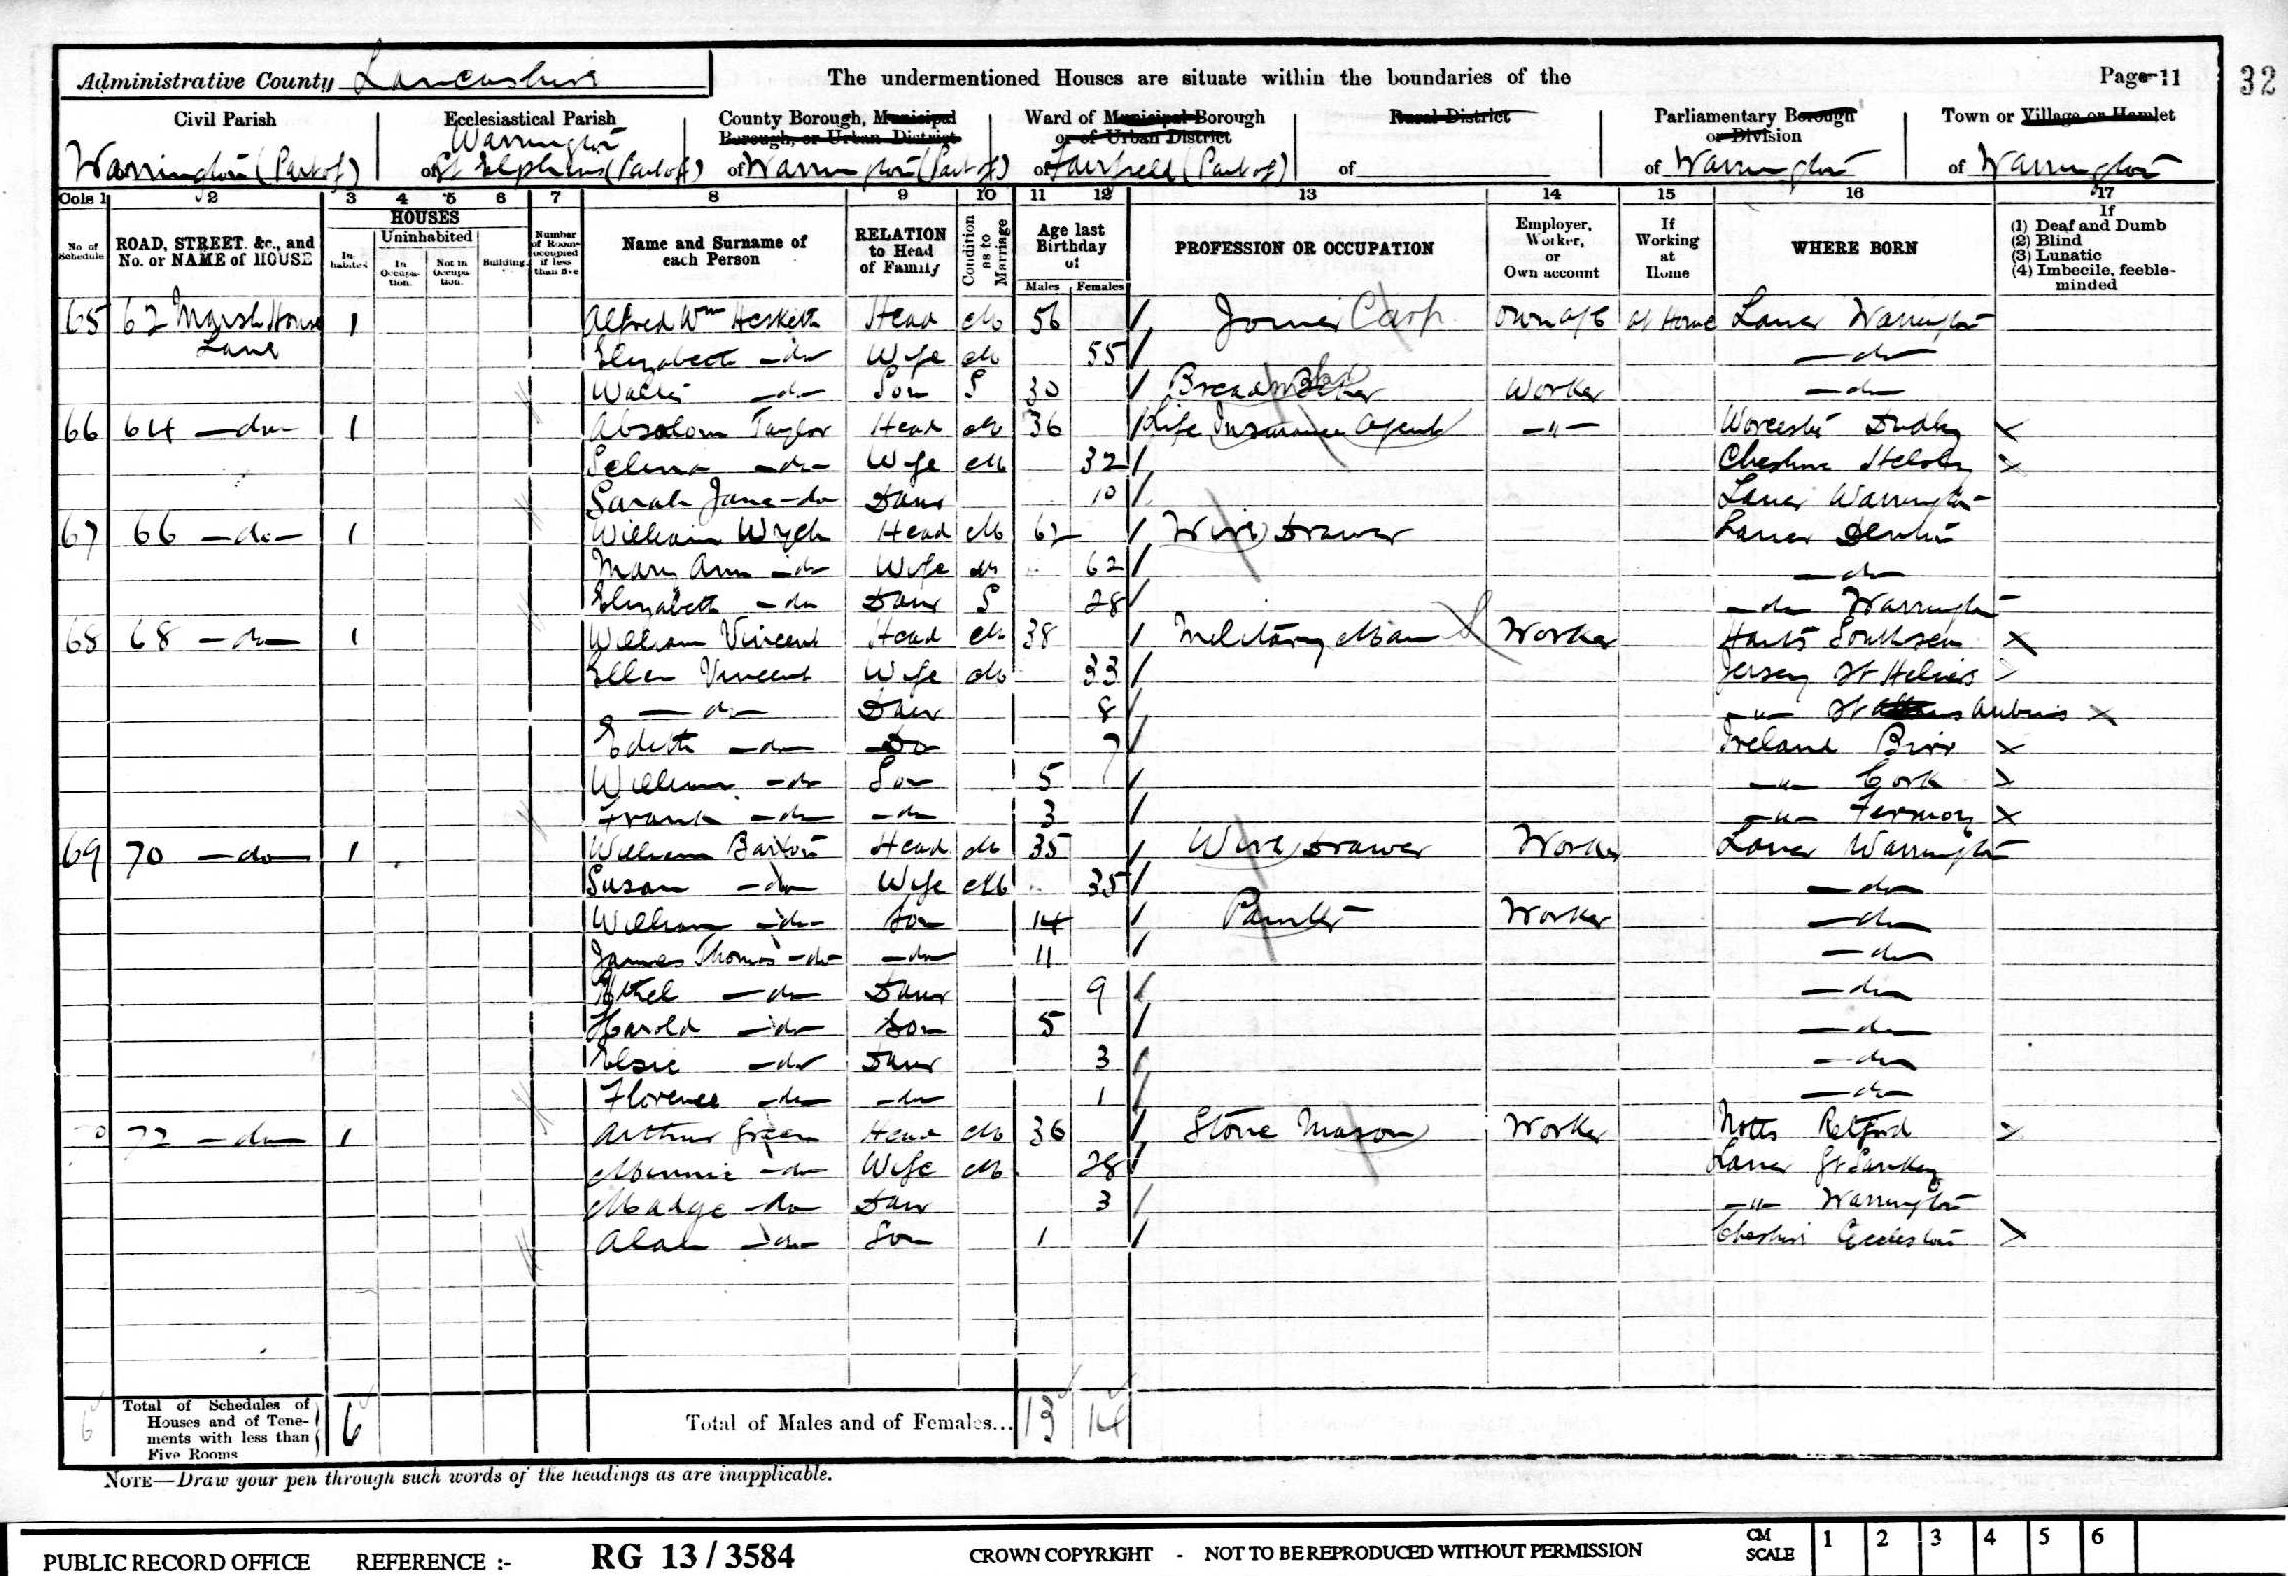 Administrative County Lancashire
The undermentioned Houses are situate within the boundaries of the
Page 11
32
Civil Parish
Warrington (Part of)
Ecclesiastical Parish
Warrington
of St Elphins (Part of)
County Borough, Municipal Borough, or Urban District
of Warrington (Part of)
Ward of Municipal Borough or of Urban District
of Fairfield (Part of)
Rural District
of
Parliamentary Borough or Division
of Warrington
Town or Village or Hamlet
of Warrington
Cols 1 2 3 4 5 6 7 8 9 10 11 12 13 14 15 16 17
No. of Schedule
ROAD, STREET, &c., and No. or NAME of HOUSE
HOUSES
Inhabited
Uninhabited
In Occupation.
Not in Occupation.
Building.
Number of Rooms occupied if less than five
Name and Surname of each Person
RELATION to Head of Family
Condition as to Marriage
Age last Birthday of
Males Females
PROFESSION OR OCCUPATION
Employer, Worker, or Own account
If Working at Home
WHERE BORN
If
(1) Deaf and Dumb
(2) Blind
(3) Lunatic
(4) Imbecile, feeble-minded
65 62 Marsh House 1 Alfred Wm Hesketh Head M 56 Joiner Carp own a/c at Home Lancr Warrington
Lane Elizabeth -do- Wife M 55 -do-
-do- Son S 30 Bread Baker Worker -do-
66 64 -do- 1 Absolom Taylor Head M 36 Life Insurance Agent -"- Worcester Dudley
Selina -do- Wife M 32 Cheshire Helsby
Sarah Jane -do- Daur 10 Lancr Warrington
67 66 -do- 1 William Head M 62 Wire Drawer Lancr Denton
Mary Ann -do- Wife M 62 -do-
Elizabeth -do- Daur S 28 -do- Warrington
68 68 -do- 1 William Vincent Head M 38 Military Man Worker Hants Southsea
Ellen Vincent Wife M 33 Jersey St Heliers
-do- Daur 8 -"- St Aubins
Edith -do- Do 7 Ireland Birr
William -do- Son 5 -"- Cork
Frank -do- -do- 3 -"- Fermoy
69 70 -do- 1 William Barton Head M 35 Wire Drawer Worker Lancr Warrington
Susan -do- Wife M 35 -do-
William -do- Son 14 Painter Worker -do-
James Thomas -do- -do- 11 -do-
Ethel -do- Daur 9 -do-
Harold -do- Son 5 -do-
Elsie -do- Daur 3 -do-
Florence -do- -do- 1 -do-
72 -do- 1 Arthur Green Head M 36 Stone Mason Worker Notts Retford
Minnie -do- Wife M 28 Lancr Gt Sankey
Madge -do- Daur 3 -"- Warrington
Alan -do- Son 1 Cheshire Eccleston
6 Total of Schedules of Houses and of Tenements with less than Five Rooms 6 Total of Males and of Females... 13 14
NOTE—Draw your pen through such words of the headings as are inapplicable.
PUBLIC RECORD OFFICE REFERENCE :- RG 13 / 3584 CROWN COPYRIGHT - NOT TO BE REPRODUCED WITHOUT PERMISSION CM SCALE 1 2 3 4 5 6